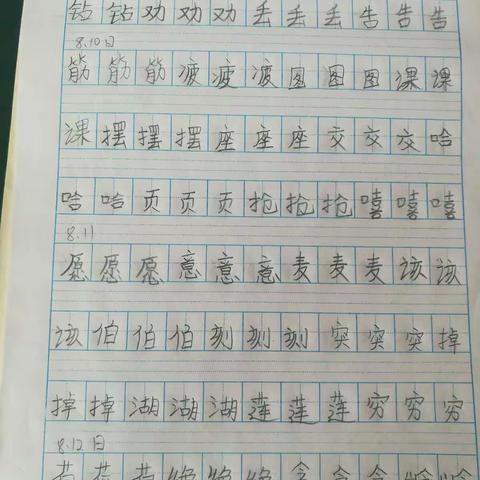 钻钻劝劝劝丢丢丢告告告
8.10日
筋筋筋疲疲疲图图图课课
课摆摆摆座座座交交交哈
哈哈页页页抢抢抢嘻嘻嘻
8.11
愿愿愿意意意麦麦麦该该
该伯伯伯刻刻刻突突突掉
掉掉湖湖湖莲莲莲穷穷穷
8.12日